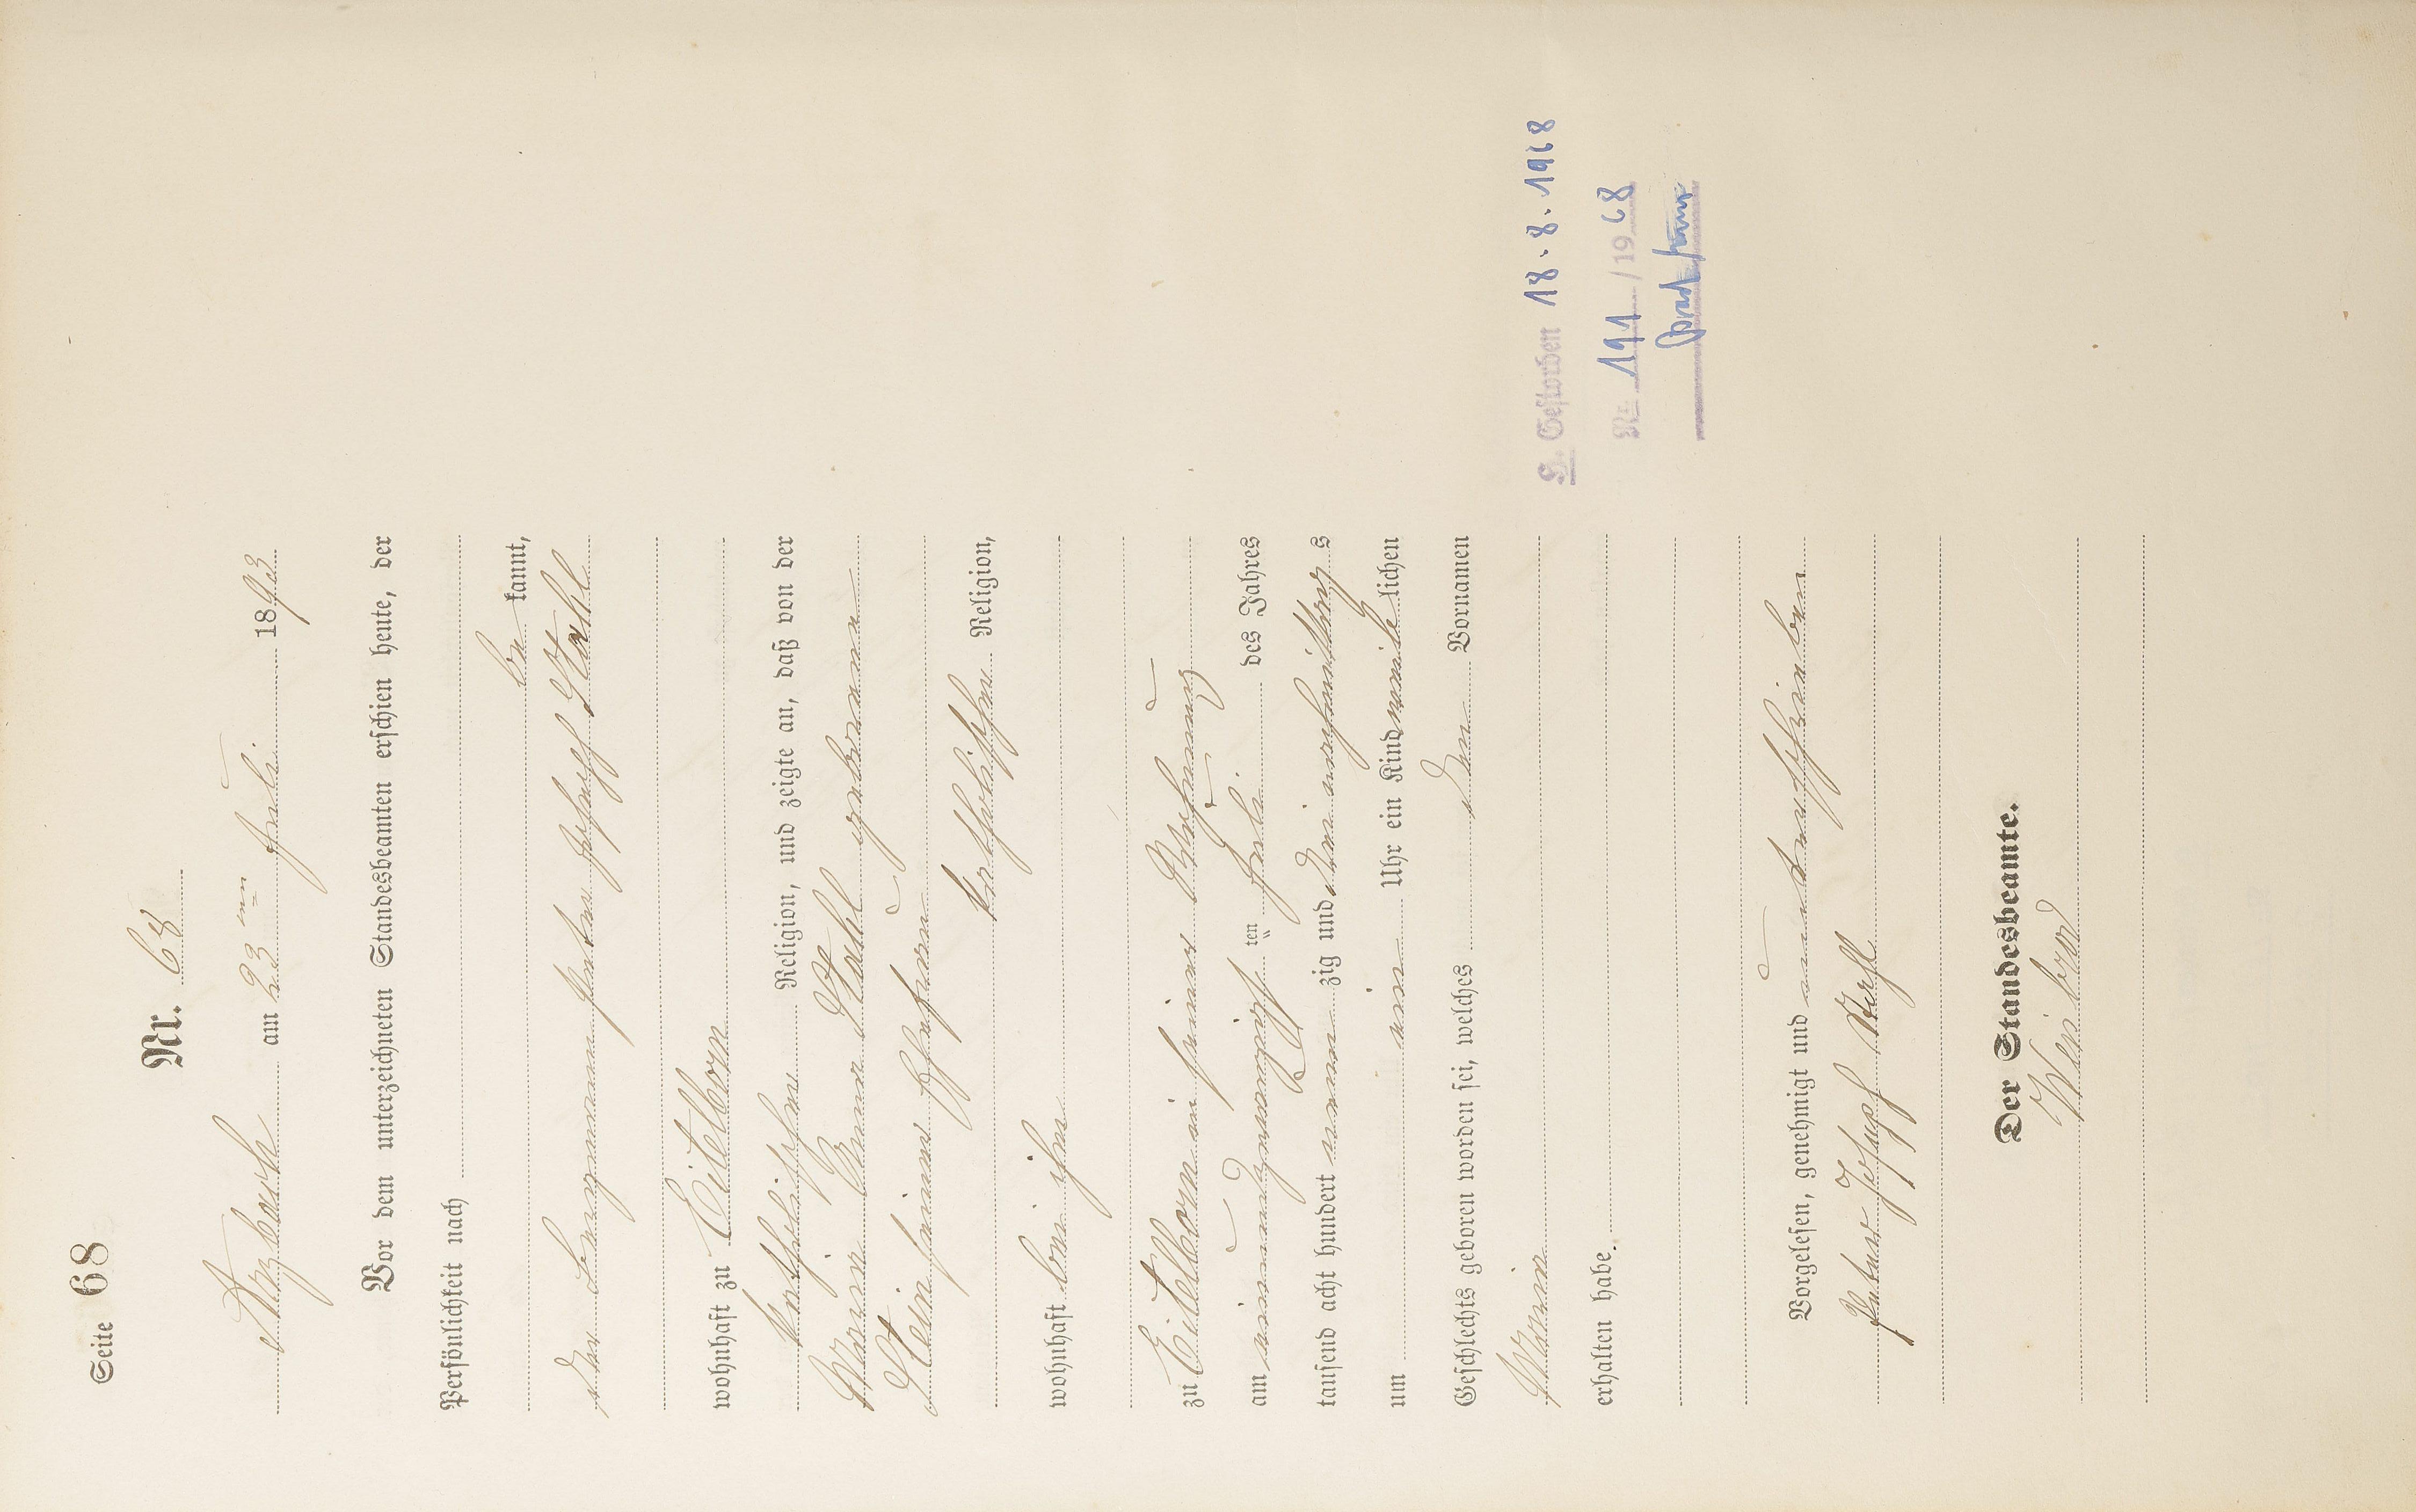 Seite 68
Nr. 68
Arzbach am 23ten Juli 1893
Vor dem unterzeichneten Standesbeamten erschien heute, der
Persönlichkeit nach
be kannt,
der Bergmann Peter Joseph Stahl
wohnhaft zu Eitelborn
katholischer Religion, und zeigte an, daß von der
Maria Anna Stahl geborene
Stein seiner Ehefrau
katholischer Religion,
wohnhaft bei ihm
zu Eitelborn in seiner Wohnung
am einundzwanzigsten Juli des Jahres
tausend acht hundert neun zig und drei nachmittags
um ein Uhr ein Kind weiblichen
Geschlechts geboren worden sei, welches den Vornamen
Maria
erhalten habe.
Vorgelesen, genehmigt und unterschrieben
Peter Joseph Stahl
Der Standesbeamte.
H. Gestorben 18.8.1968
Nr. 191/1968